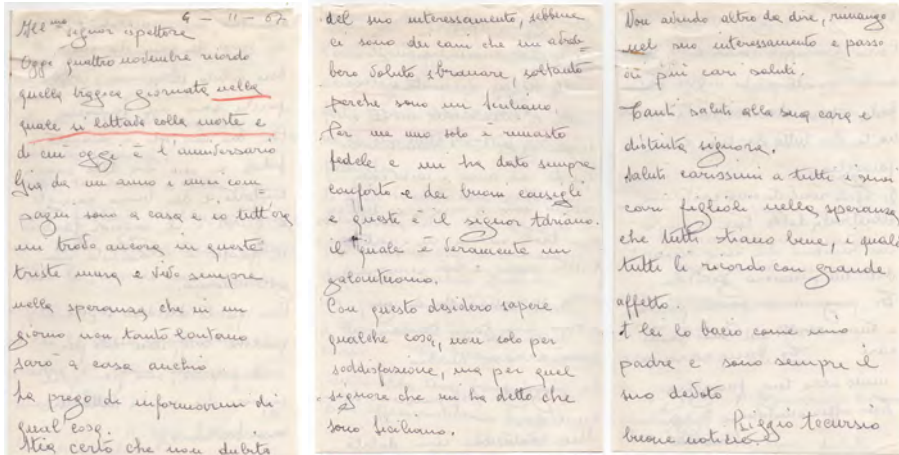 4 - 11 - 67
Ill.mo signor ispettore
Oggi quattro novembre ricordo
quella tragica giornata nella
quale si lottava colla morte e
di cui oggi è l'anniversario
Già da un anno i miei com
pagni sono a casa e io tutt'ora
mi trovo ancora in queste
triste mura e vivo sempre
nella speranza che in un
giorno non tanto lontano
sarò a casa anchio
La prego di informarmi di
qual cosa.
Stia certo che non dubito
del suo interessamento, sebbene
ci sono dei cani che mi avreb
bero voluto sbranare, soltanto
perche sono un siciliano.
Per me uno solo è rimasto
fedele e mi ha dato sempre
conforto e dei buoni consigli
e queste è il signor Adriano.
il quale è veramente un
galantuomo.
Con questo desidero sapere
qualche cosa, non solo per
soddisfazione, ma per quel
signore che mi ha detto che
sono siciliano.
Non avendo altro da dire, rimango
nel suo interessamento e passo
ai più cari saluti.
Tanti saluti alla sua cara e
distinta signora.
Saluti carissimi a tutti i suoi
cari figlioli nella speranza
che tutti stiano bene, i quali
tutti li ricordo con grande
affetto.
A lei lo bacio come mio
padre e sono sempre il
suo devoto
Riggio Tecursio
buone notizie.